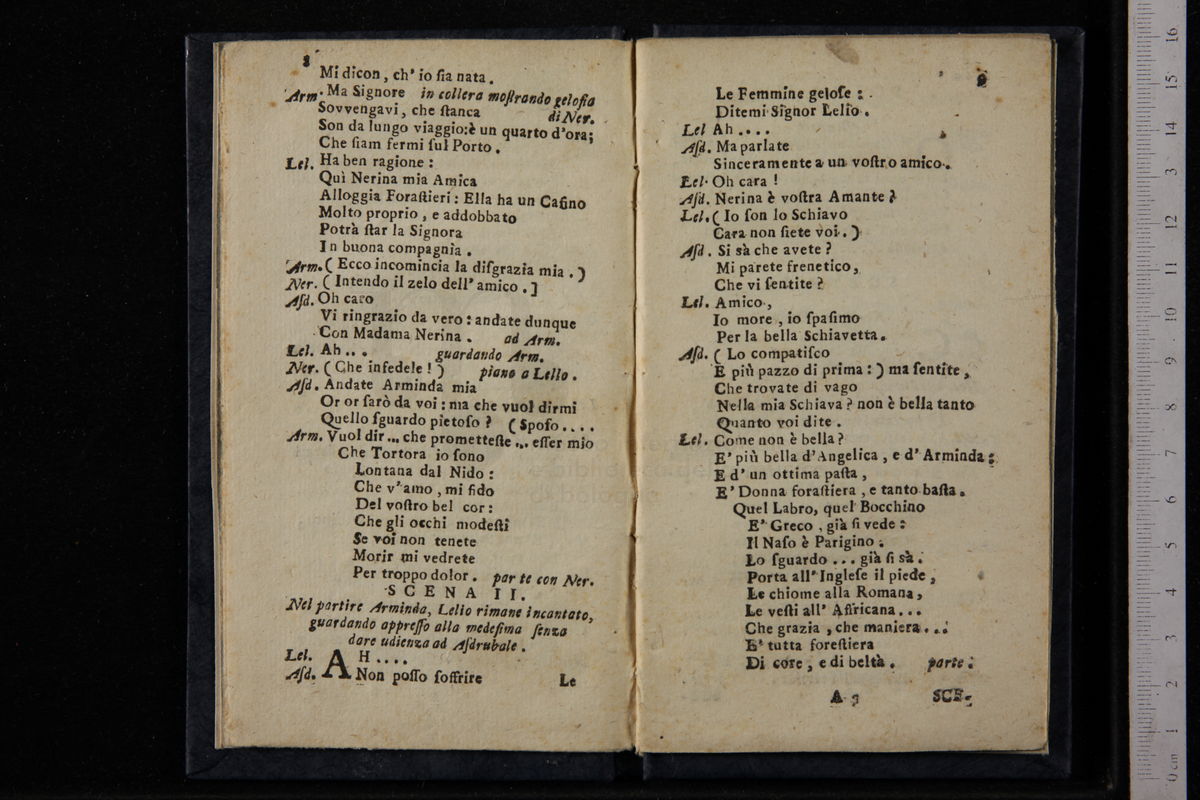 8
Mi dicon, ch' io ſia nata.
Arm. Ma Signore in collera moſtrando geloſia
Sovvengavi, che ſtanca di Ner.
Son da lungo viaggio: è un quarto d'ora;
Che ſiam fermi ſul Porto.
Lel. Ha ben ragione:
Quì Nerina mia Amica
Alloggia Foraſtieri: Ella ha un Caſino
Molto proprio, e addobbato
Potrà ſtar la Signora
In buona compagnia.
Arm. ( Ecco incomincia la diſgrazia mia. )
Ner. ( Intendo il zelo dell' amico. ]
Aſd. Oh caro
Vi ringrazio da vero: andate dunque
Con Madama Nerina. ad Arm.
Lel. Ah... guardando Arm.
Ner. ( Che infedele! ) piano a Lello.
Aſd. Andate Arminda mia
Or or ſarò da voi: ma che vuol dirmi
Quello ſguardo pietoſo? ( Spoſo....
Arm. Vuol dir... che prometteſte... eſſer mio
Che Tortora io ſono
Lontana dal Nido:
Che v' amo, mi fido
Del voſtro bel cor:
Che gli occhi modeſti
Se voi non tenete
Morir mi vedrete
Per troppo dolor. parte con Ner.
SCENA II.
Nel partire Arminda, Lelio rimane incantato,
guardando appreſſo alla medeſima ſenza
dare udienza ad Aſdrubale.
Lel. AH....
Aſd. Non poſſo ſoffrire
Le
9
Le Femmine geloſe:
Ditemi Signor Lelio.
Lel Ah....
Aſd. Ma parlate
Sinceramente a un voſtro amico.
Lel. Oh cara!
Aſd. Nerina è voſtra Amante?
Lel. ( Io ſon lo Schiavo
Cara non ſiete voi. )
Aſd. Si sà che avete?
Mi parete frenetico,
Che vi ſentite?
Lel. Amico,
Io more, io ſpaſimo
Per la bella Schiavetta.
Aſd. ( Lo compatiſco
E più pazzo di prima: ) ma ſentite,
Che trovate di vago
Nella mia Schiava? non è bella tanto
Quanto voi dite.
Lel. Come non è bella?
E' più bella d'Angelica, e d' Arminda:
E d' un ottima paſta,
E' Donna foraſtiera, e tanto baſta.
Quel Labro, quel Bocchino
E' Greco, già ſi vede:
Il Naſo è Parigino:
Lo ſguardo... già ſi sà.
Porta all' Ingleſe il piede,
Le chiome alla Romana,
Le veſti all' Affricana...
Che grazia, che maniera...
E' tutta foreſtiera
Di core, e di beltà. parte.
A 3
SCE-